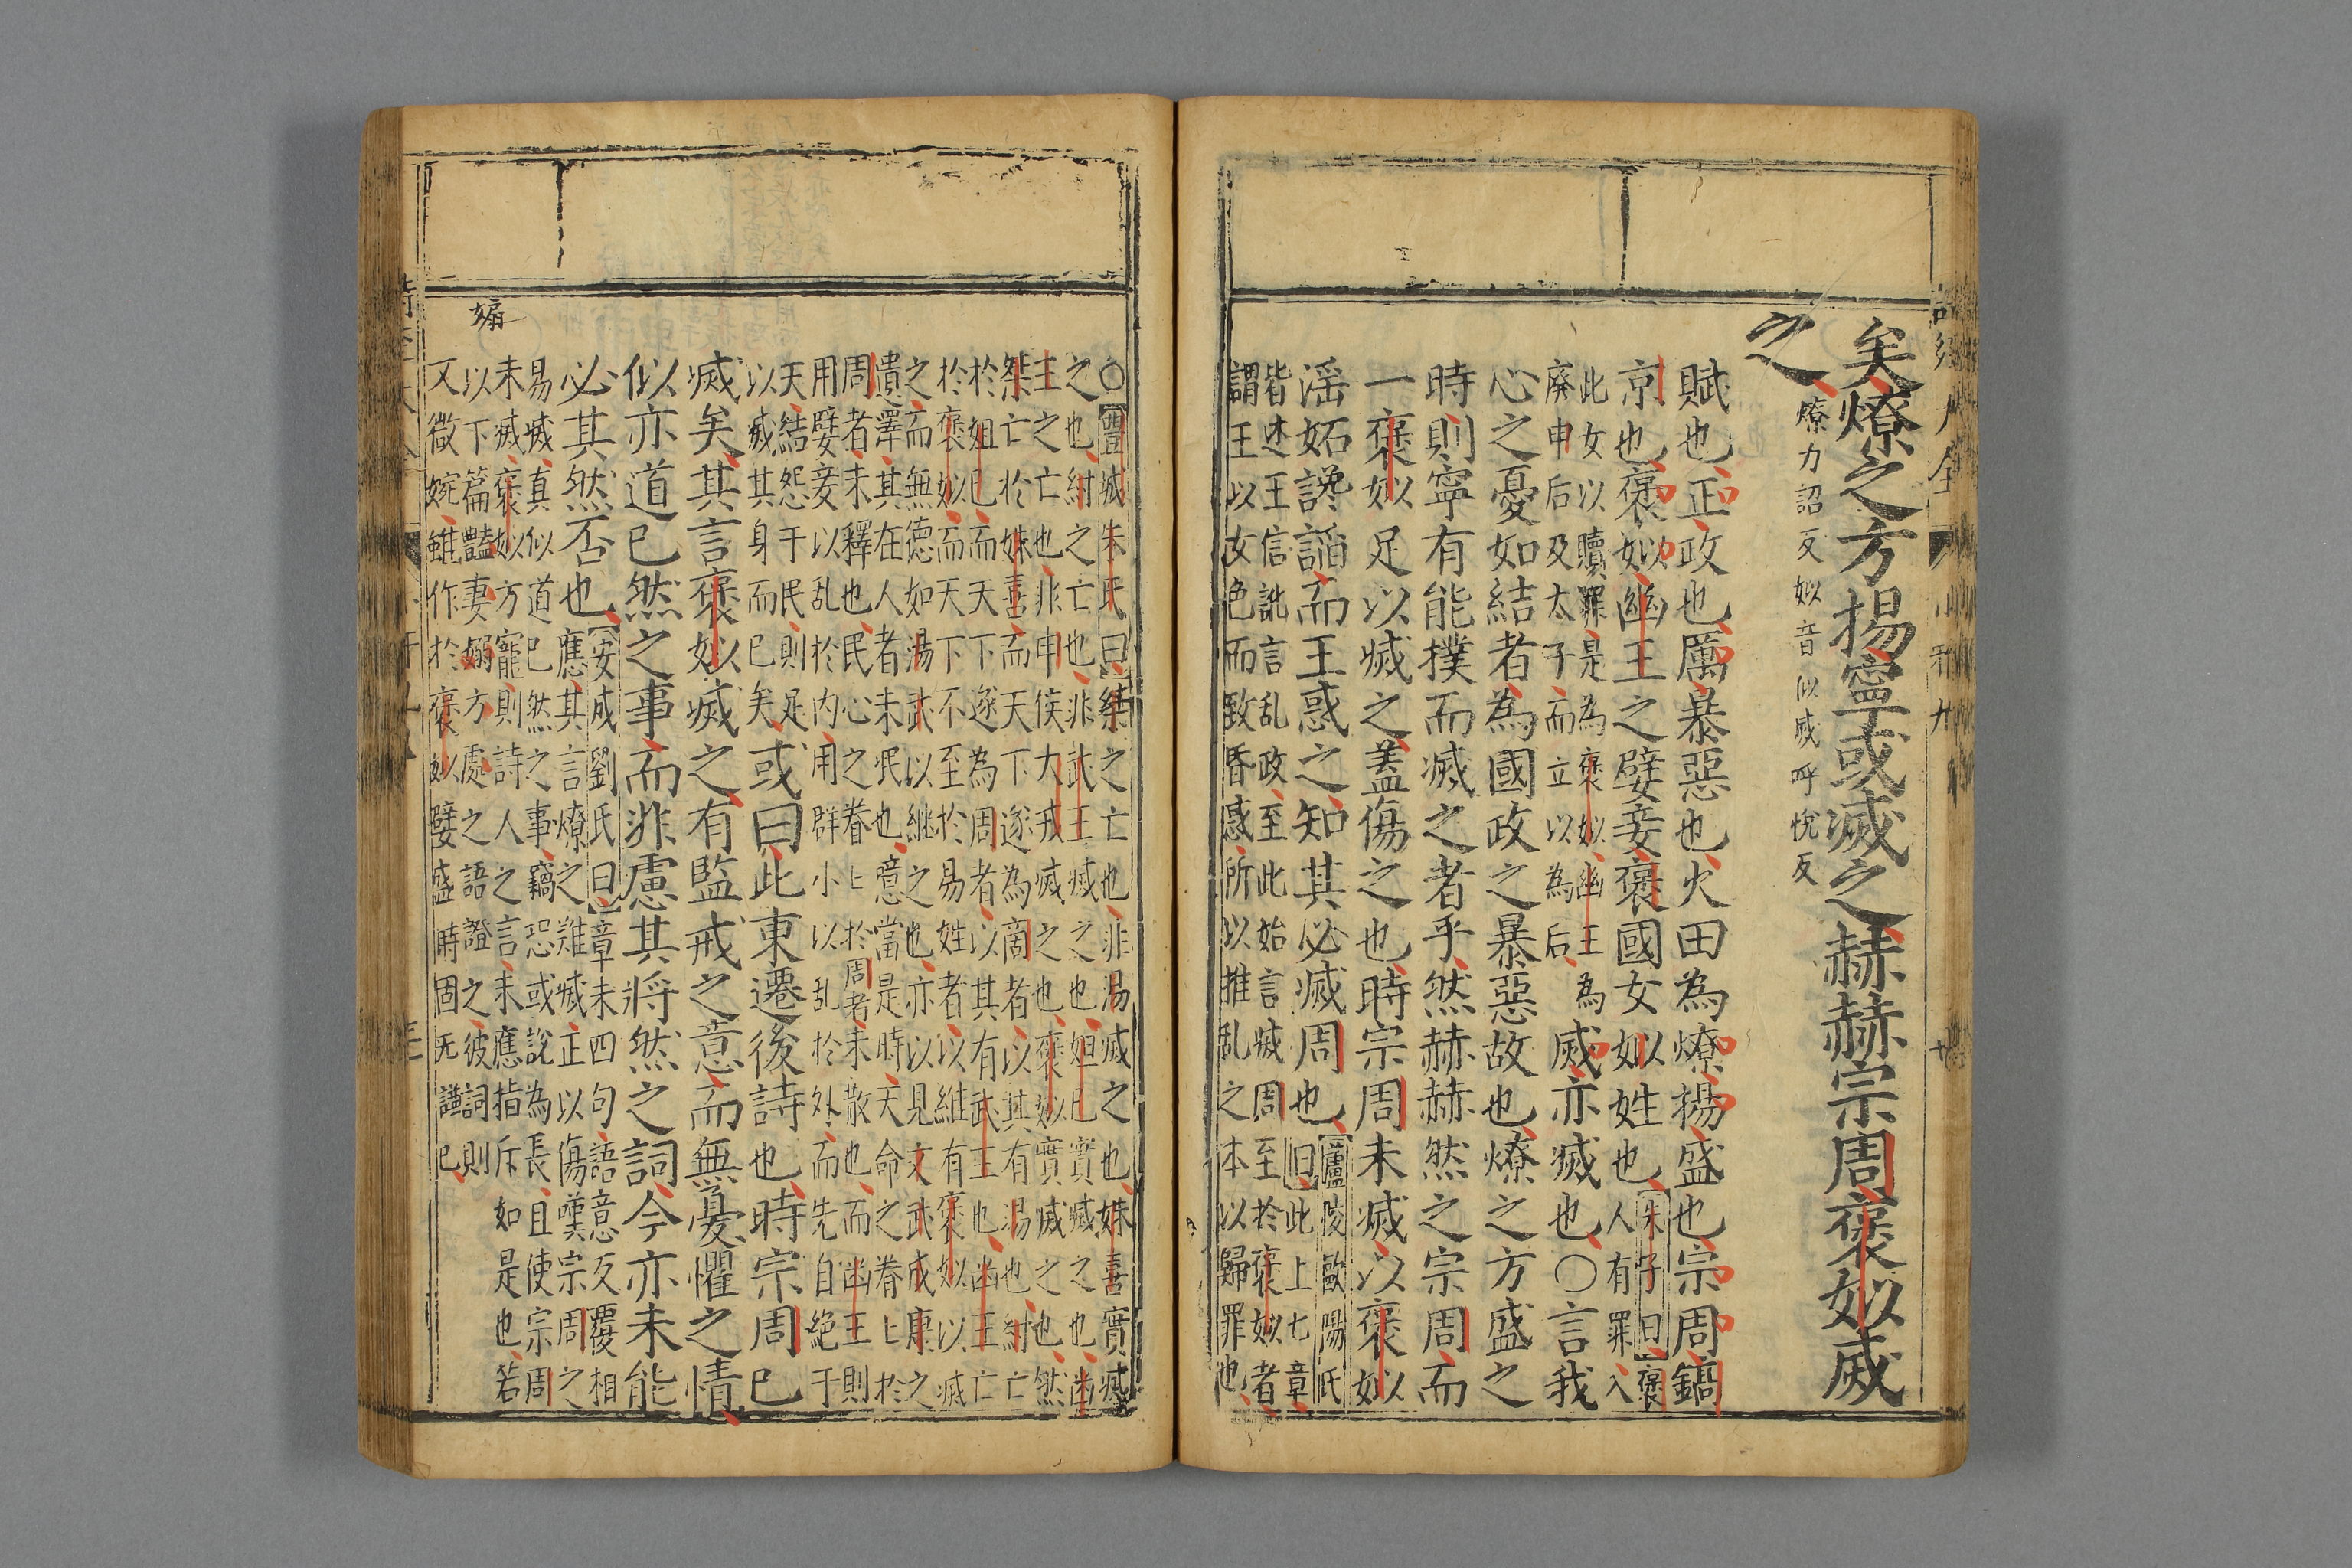 矣燎之方揚寧或滅之赫赫宗周褒姒烕
之
燎力詔反姒音似烕呼悅反
賦也正政也厲暴惡也火田為燎揚盛也宗周鎬
京也褒姒幽王之嬖妾褒國女姒姓也
朱子曰褒
人有罪入
此女以贖罪是為褒姒幽王為
廢申后及太子而立以為后
烕亦滅也○言我
心之憂如結者為國政之暴惡故也燎之方盛之
時則寧有能撲而滅之者乎然赫赫然之宗周而
一褒姒足以滅之蓋傷之也時宗周未滅以褒姒
淫妬讒諂而王惑之知其必滅周也
廬陵歐陽氏
曰此上七章
皆述王信訛言乱政至此始言滅周至於褒姒者
謂王以女色而致昏惑所以推亂之本以歸罪也
○豐城朱氏曰桀之亡也非湯滅之也妺喜實滅
之也紂之亡也非武王滅之也妲己實滅之也幽
王之亡也非申侯犬戎滅之也褒姒實滅之也然
桀亡於妺喜而天下遂為商者以其有湯也紂亡
於妲己而天下遂為周者以其有武王也幽王亡
於褒姒而天下不至於易姓者以維有褒姒以滅
之而無德如湯武以継之也亦以見文武成康之
遺澤其在人者未泯也意當是時天命之眷〻於
周者未釋也民心之眷〻於周者未散也而幽王則
用嬖妾以乱於内用群小以乱於外而先自絶于
天結怨于民則是
以滅其身而已矣
或曰此東遷後詩也時宗周已
滅矣其言褒姒滅之有監戒之意而無憂懼之情
似亦道已然之事而非慮其將然之詞今亦未能
必其然否也
安成劉氏曰章末四句語意反覆相
應其言燎之難滅正以傷嘆宗周之
易滅真似道已然之事竊恐或說為長且使宗周
未滅褒姒方寵則詩人之言未應指斥如是也若
以下篇豔妻煽方處之語證之彼詞則
又微婉雖作於褒姒嬖盛時固旡謙已
煽